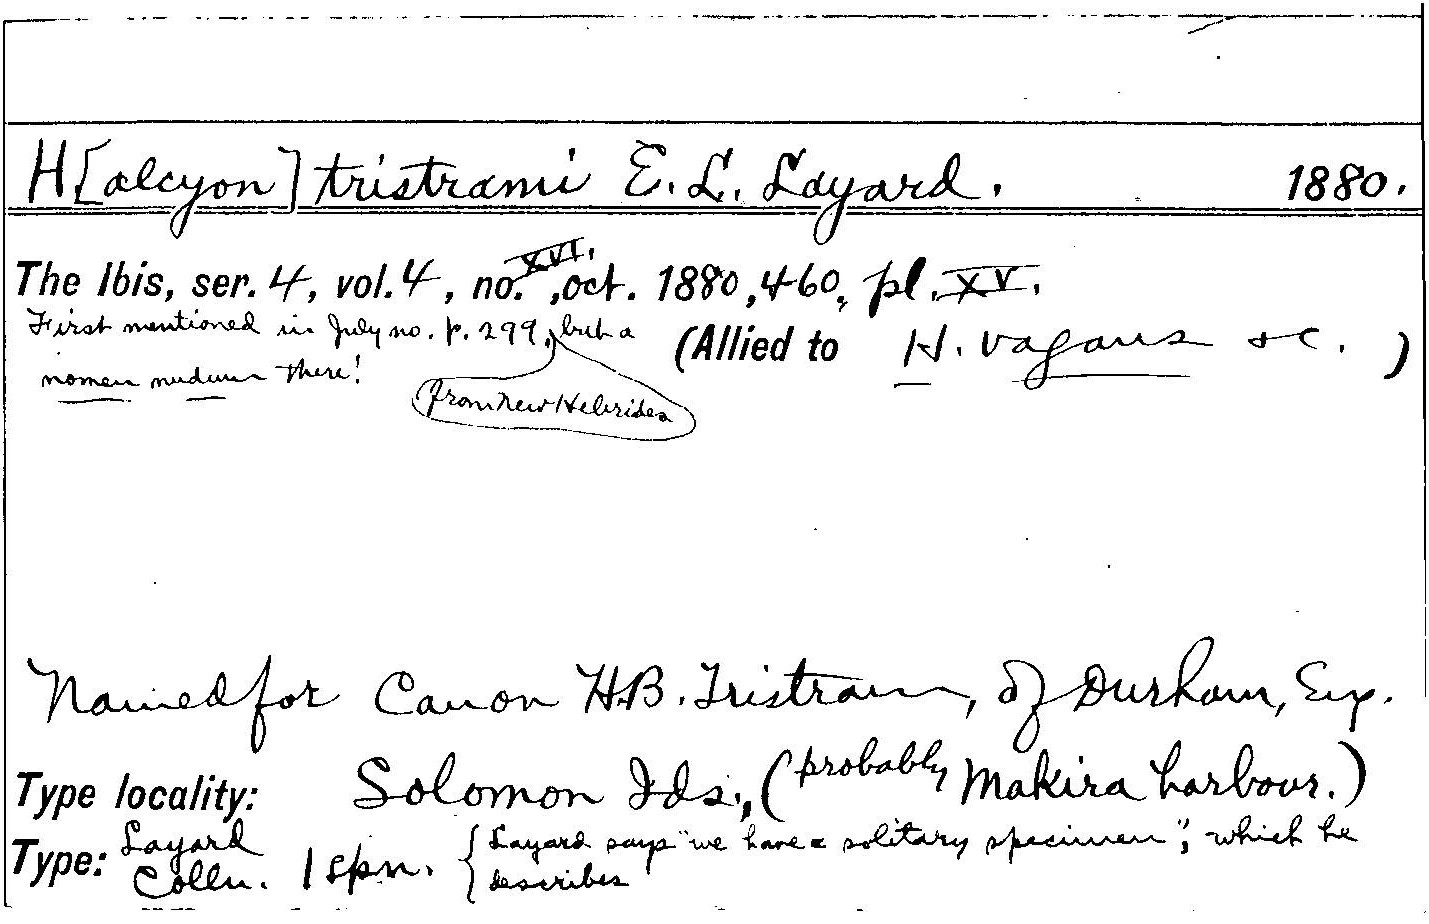 H[alcyon] tristrami E. L. Layard. 1880.
The Ibis, ser. 4, vol. 4, no. XVI., oct. 1880, 460, pl. XV.
First mentioned in July no. p. 299, but a
nomen nudum there!
from New Hebrides
(Allied to H. vagans &c. )
Named for Canon H.B. Tristram, of Durham, Eng.
Type locality: Solomon Ids., (probably Makira harbour.)
Type: Layard Colln. 1 spn. { Layard says "we have a solitary specimen", which he
describes